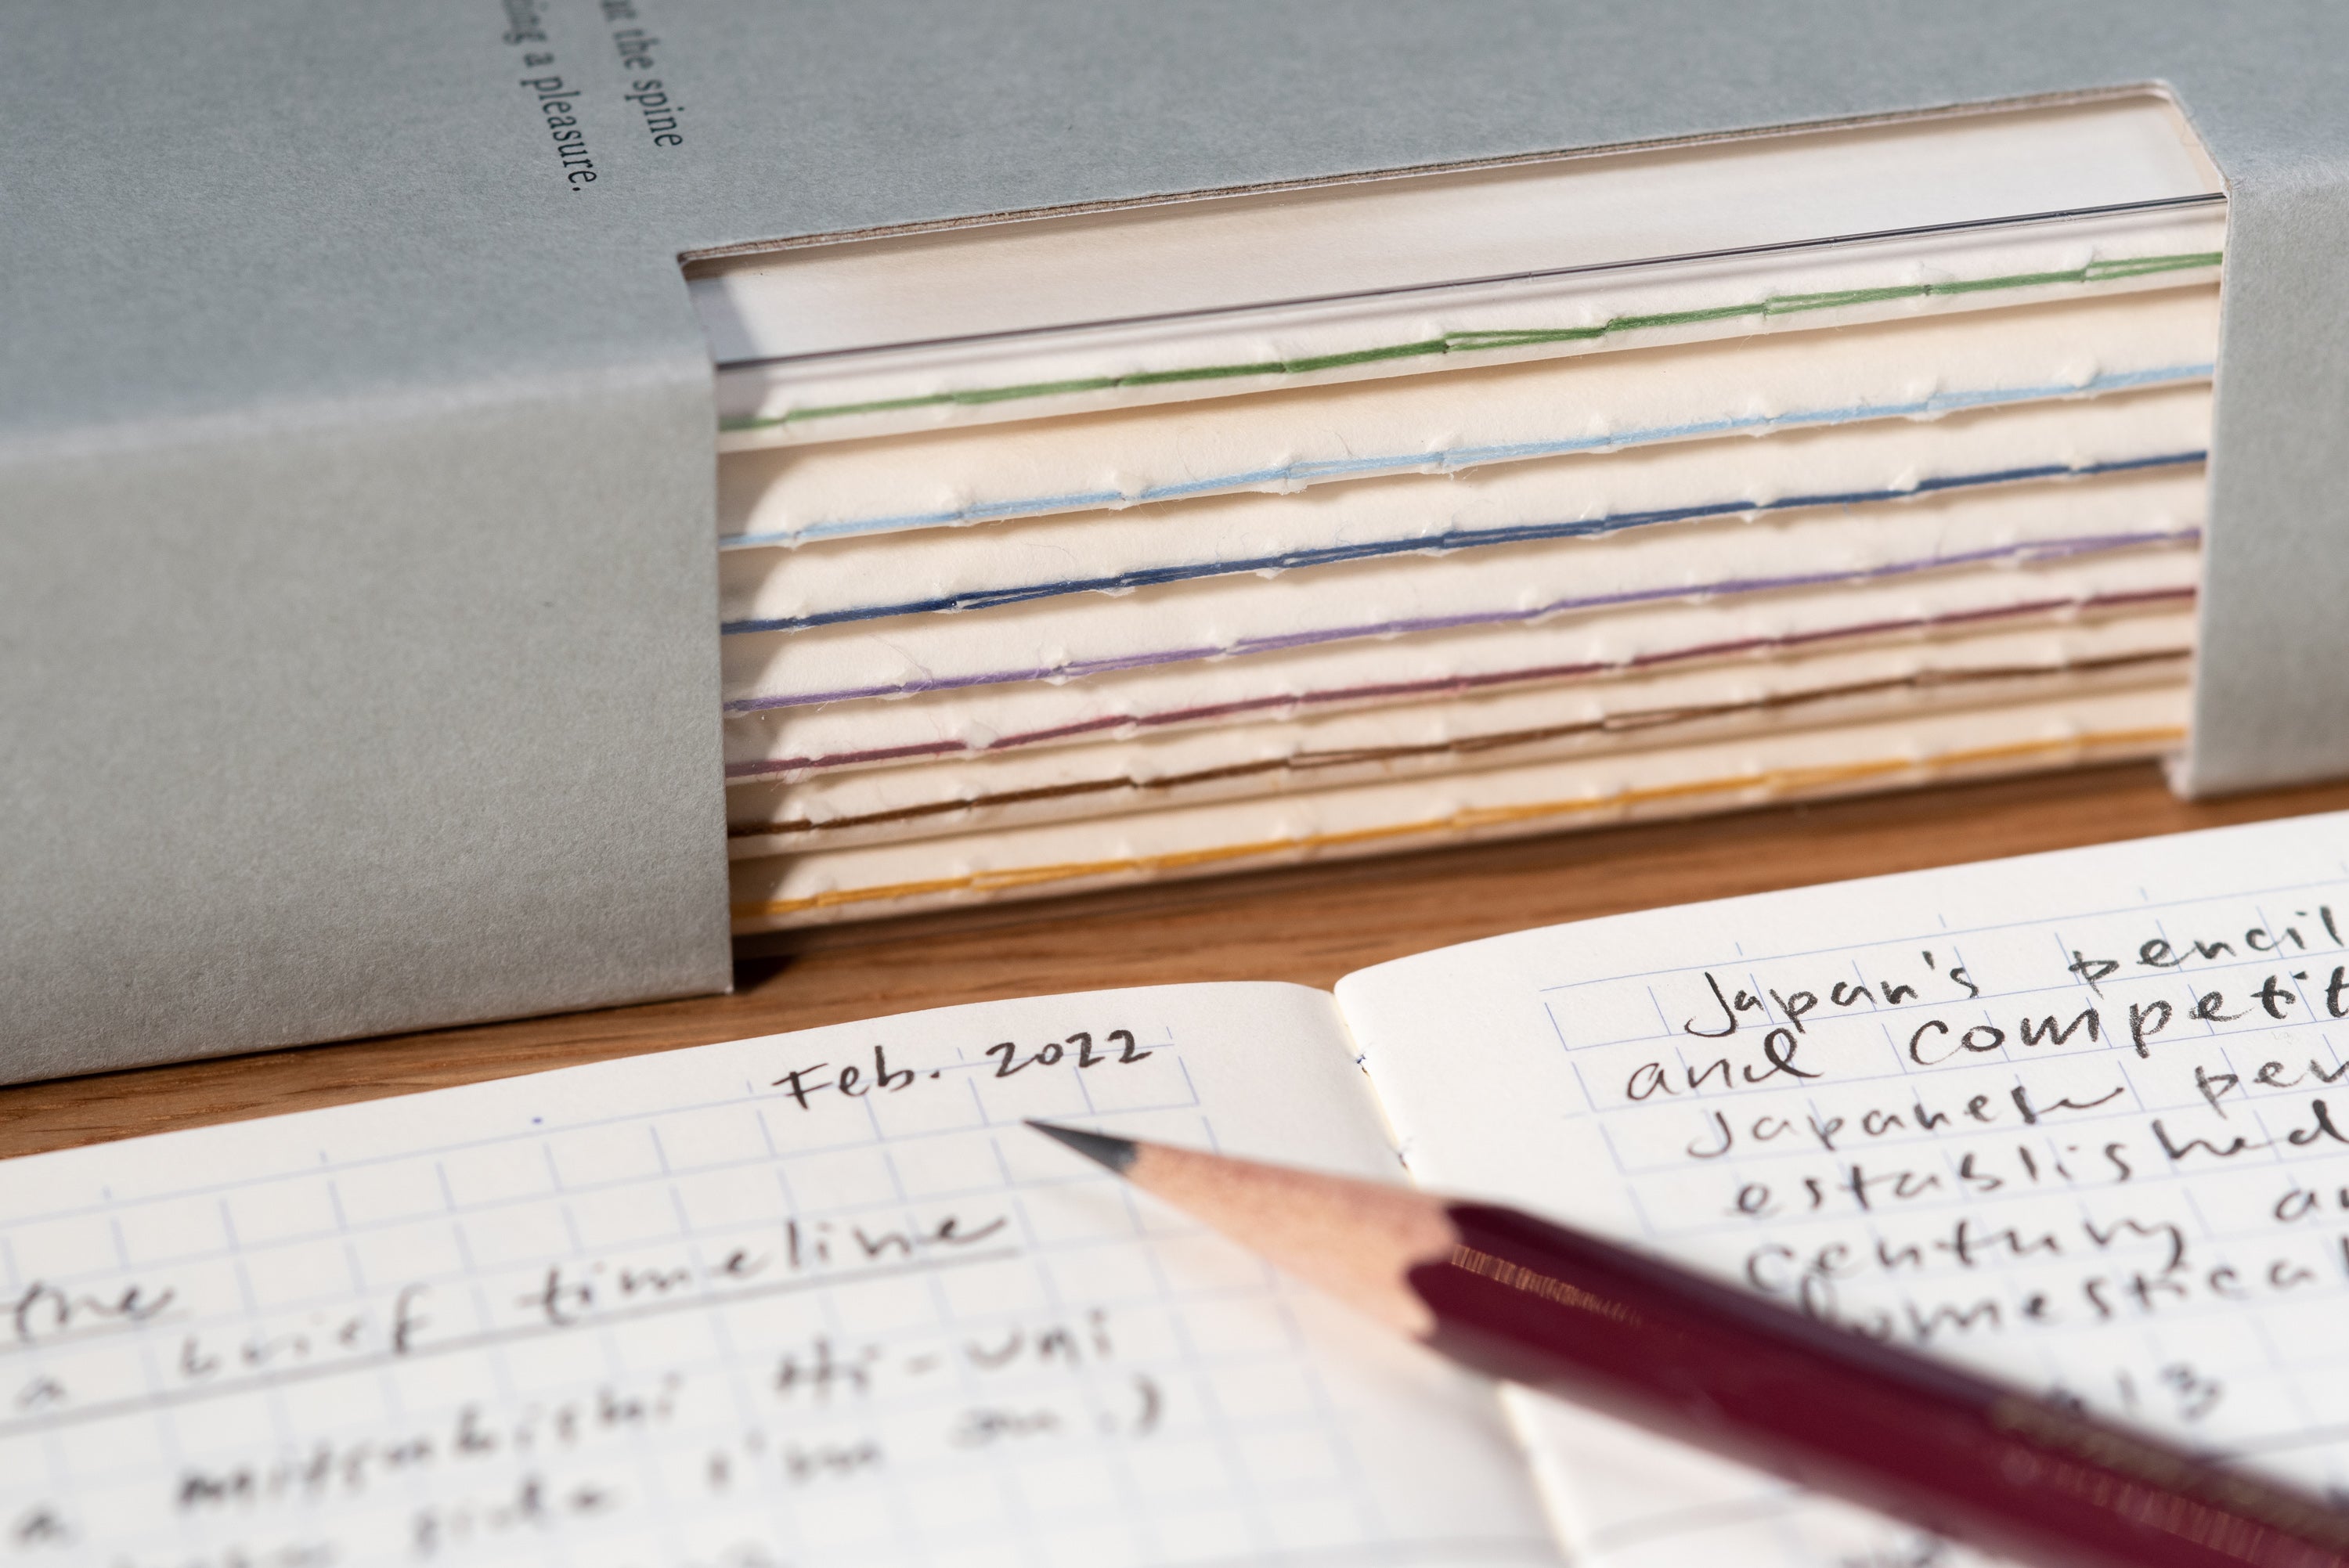 the spine
ing a pleasure.
Feb. 2022
the
a brief timeline
mitsubishi Hi-uni
a side I'm on.)
Japan's pencil
and competit
Japanese pen
established
century a
domestical
13